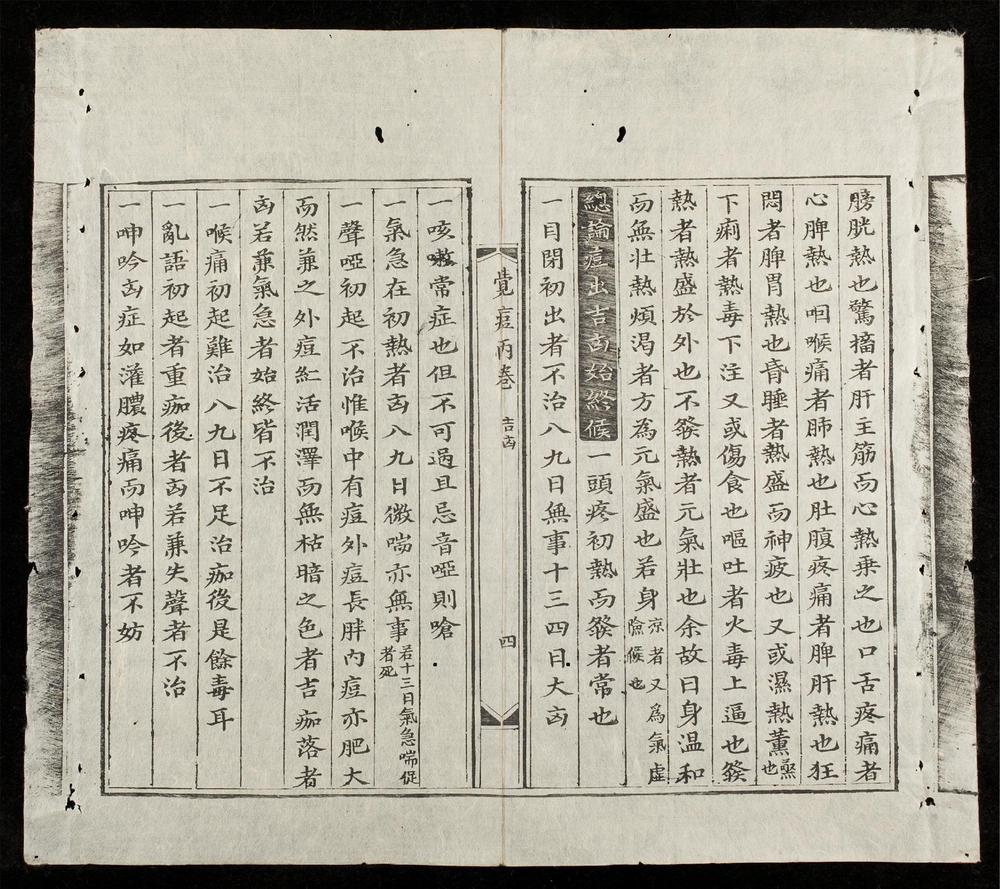 膀胱熱也驚搐者肝主筋而心熱乗之也口舌疼痛者
心脾熱也咽喉痛者肺熱也肚腹疼痛者脾肝熱也狂
悶者脾胃熱也昏睡者熱盛而神疲也又或濕熱薰蒸也
下痢者熱毒下注又或傷食也嘔吐者火毒上逼也發
熱者熱盛於外也不發熱者元氣壯也余故曰身温和
而無壯熱煩渴者方為元氣盛也若身凉者又為氣虛險候也
總論痘出吉凶始終候一頭疼初熱而發者常也
一目閉初出者不治八九日無事十三四日大凶
覺痘丙卷 吉凶 四
一咳嗽常症也但不可過且忌音啞則嗆
一氣急在初熱者凶八九日微喘亦無事若十三日氣急喘促者死
一聲啞初起不治惟喉中有痘外痘長胖内痘亦肥大
而然兼之外痘紅活潤澤而無枯暗之色者吉痂落者
凶若兼氣急者始終皆不治
一喉痛初起難治八九日不足治痂後是餘毒耳
一亂語初起者重痂後者凶若兼失聲者不治
一呻吟凶症如灌膿疼痛而呻吟者不妨